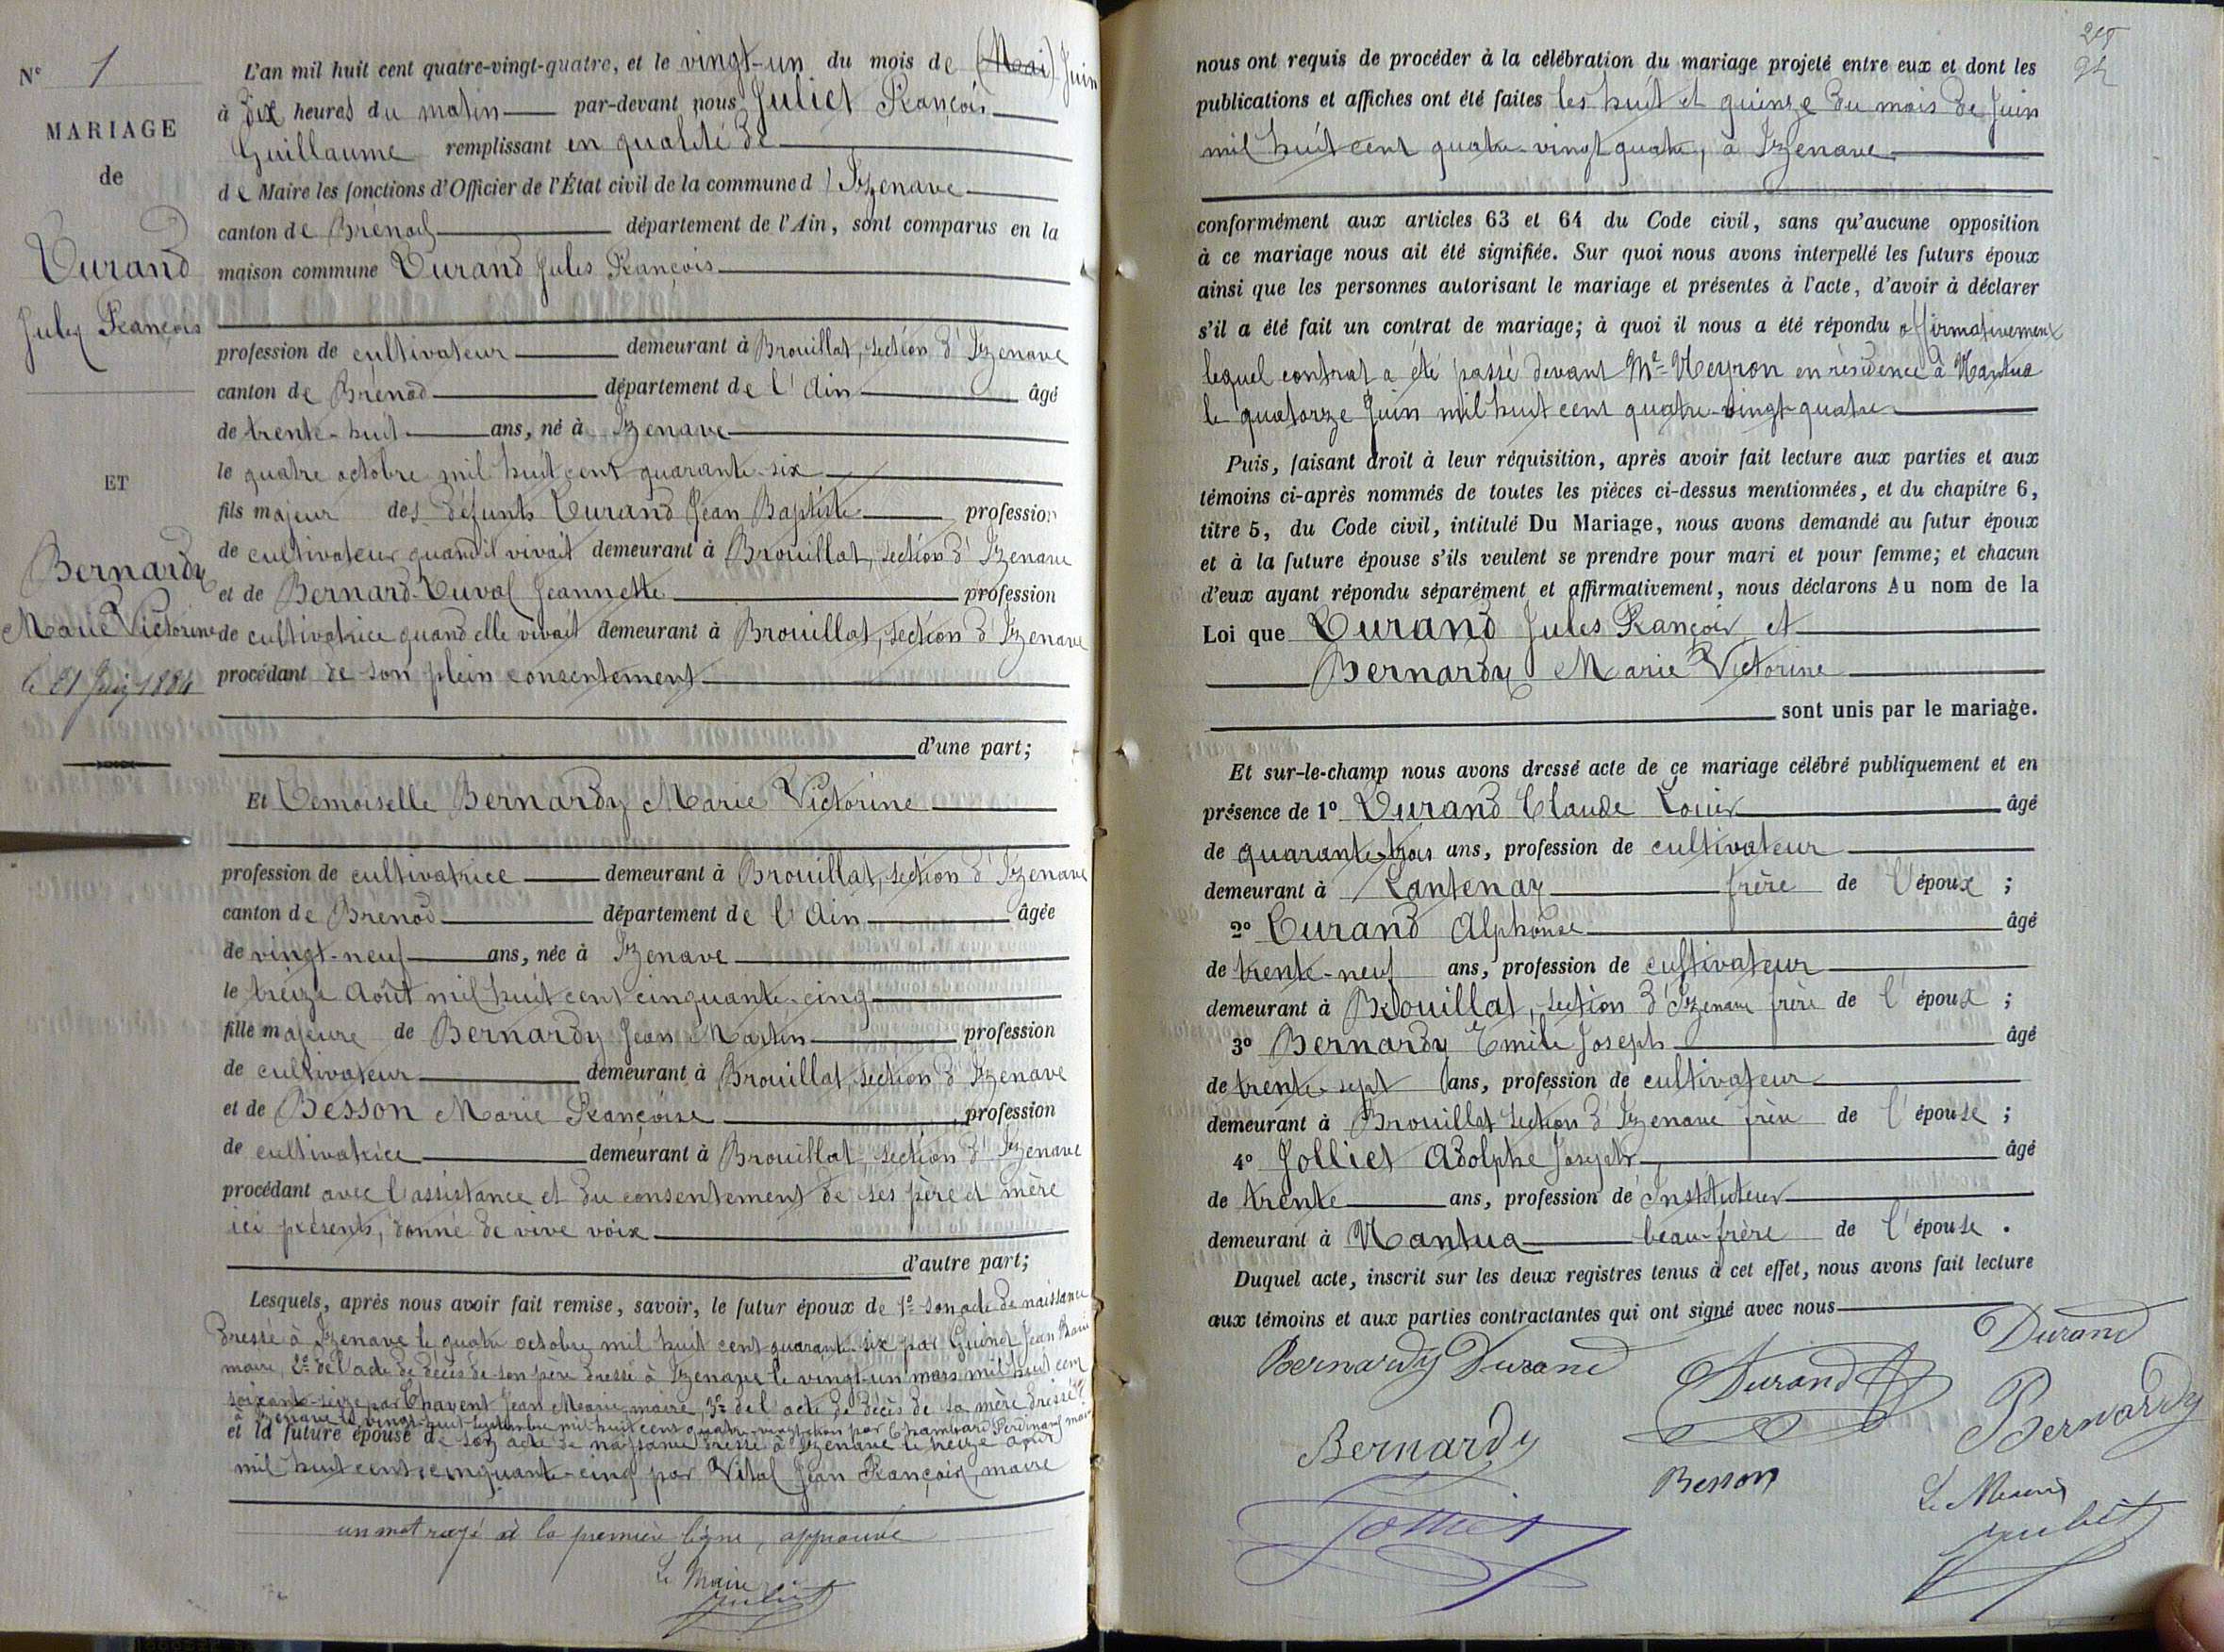 N° 1
MARIAGE
de
Durand
Jules François
ET
Bernardy
Marie Victorine
le 21 Juin 1884
L'an mil huit cent quatre-vingt-quatre, et le vingt-un du mois de (Mai) Juin
à dix heures du matin par-devant nous Juliet François
Guillaume remplissant en qualité de
de Maire les fonctions d'Officier de l'État civil de la commune d'Izenave
canton de Brénod département de l'Ain, sont comparus en la
maison commune Durand Jules François
profession de cultivateur demeurant à Brouillat, section d'Izenave
canton de Brénod département de l'Ain âgé
de trente-huit ans, né à Izenave
le quatre octobre mil huit cent quarante-six
fils majeur des défunts Durand Jean Baptiste profession
de cultivateur quand il vivait demeurant à Brouillat, section d'Izenave
et de Bernard-Duval Jeannette profession
de cultivatrice quand elle vivait demeurant à Brouillat, section d'Izenave
procédant de son plein consentement
d'une part;
Et Demoiselle Bernardy Marie Victorine
profession de cultivatrice demeurant à Brouillat, section d'Izenave
canton de Brénod département de l'Ain âgée
de vingt-neuf ans, née à Izenave
le treize Août mil huit cent cinquante-cinq
fille majeure de Bernardy Jean Martin profession
de cultivateur demeurant à Brouillat, section d'Izenave
et de Besson Marie Françoise profession
de cultivatrice demeurant à Brouillat, section d'Izenave
procédant avec l'assistance et du consentement de ses père et mère
ici présents, donné de vive voix
d'autre part;
Lesquels, après nous avoir fait remise, savoir, le futur époux de 1° son acte de naissance
dressé à Izenave le quatre octobre mil huit cent quarante-six par Guinet Jean
maire, 2° de l'acte de décès de son père dressé à Izenave le vingt-un mars mil huit cent
soixante-seize par Chavent Jean Marie, maire, 3° de l'acte de décès de sa mère dressé
à Izenave le vingt-huit septembre mil huit cent quatre-vingt par Chambard Ferdinand maire
et la future épouse de son acte de naissance dressé à Izenave le treize août
mil huit cent cinquante-cinq par Vital Jean François, maire
un mot rayé à la première ligne, approuvé
Le Maire
Juliet
92
nous ont requis de procéder à la célébration du mariage projeté entre eux et dont les
publications et affiches ont été faites les huit et quinze du mois de Juin
mil huit cent quatre-vingt quatre, à Izenave
conformément aux articles 63 et 64 du Code civil, sans qu'aucune opposition
à ce mariage nous ait été signifiée. Sur quoi nous avons interpellé les futurs époux
ainsi que les personnes autorisant le mariage et présentes à l'acte, d'avoir à déclarer
s'il a été fait un contrat de mariage; à quoi il nous a été répondu affirmativement
lequel contrat a été passé devant Me Neyron en résidence à Nantua
le quatorze Juin mil huit cent quatre-vingt-quatre
Puis, faisant droit à leur réquisition, après avoir fait lecture aux parties et aux
témoins ci-après nommés de toutes les pièces ci-dessus mentionnées, et du chapitre 6,
titre 5, du Code civil, intitulé Du Mariage, nous avons demandé au futur époux
et à la future épouse s'ils veulent se prendre pour mari et pour femme; et chacun
d'eux ayant répondu séparément et affirmativement, nous déclarons Au nom de la
Loi que Durand Jules François et
Bernardy Marie Victorine
sont unis par le mariage.
Et sur-le-champ nous avons dressé acte de ce mariage célébré publiquement et en
présence de 1° Durand Claude Louis âgé
de quarante-trois ans, profession de cultivateur
demeurant à Lantenay frère de l'époux ;
2° Durand Alphonse âgé
de trente-neuf ans, profession de cultivateur
demeurant à Brouillat, section d'Izenave frère de l'époux ;
3° Bernardy Emile Joseph âgé
de trente-sept ans, profession de cultivateur
demeurant à Brouillat section d'Izenave frère de l'épouse ;
4° Jolliet Adolphe Joseph âgé
de trente ans, profession de Instituteur
demeurant à Nantua beau-frère de l'épouse .
Duquel acte, inscrit sur les deux registres tenus à cet effet, nous avons fait lecture
aux témoins et aux parties contractantes qui ont signé avec nous
Bernardy Durand Durand Durand
Bernardy Bernardy
Besson
Jolliet
Le Maire
Juliet